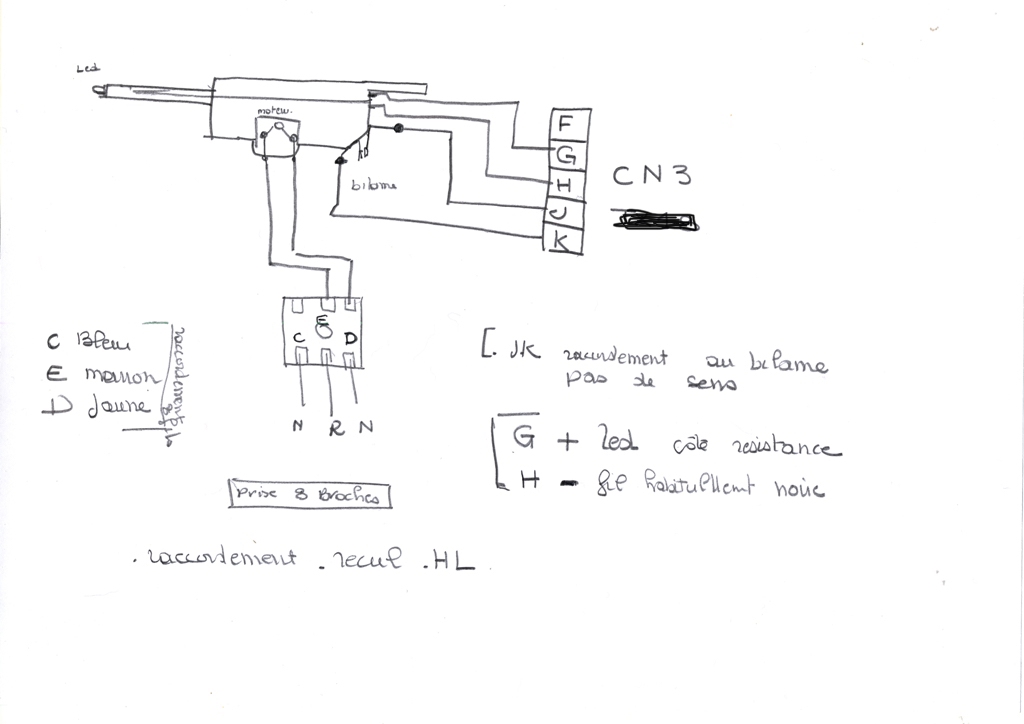 Led
moteur
F
G
H
J
K
CN3
bilame
E
C
D
N R N
C Bleu
E marron
D Jaune
raccordement
[. JK raccordement au bilame
pas de sens
G + led côte resistance
H - fil habitullemt noir
Prise 8 Broches
. raccordement . recul . HL